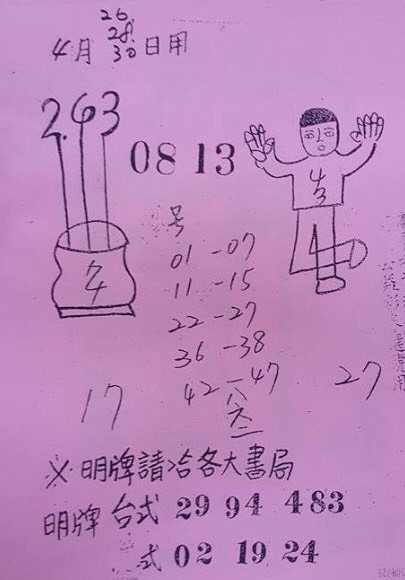 26.
28.
4月30日用
2.63
0813
4
3
1
号
01-07
11-15
22-27
36-38
42-47
六
二
17
27
※明牌請洽各大書局
明牌 台式 29 94 483
式 02 19 24